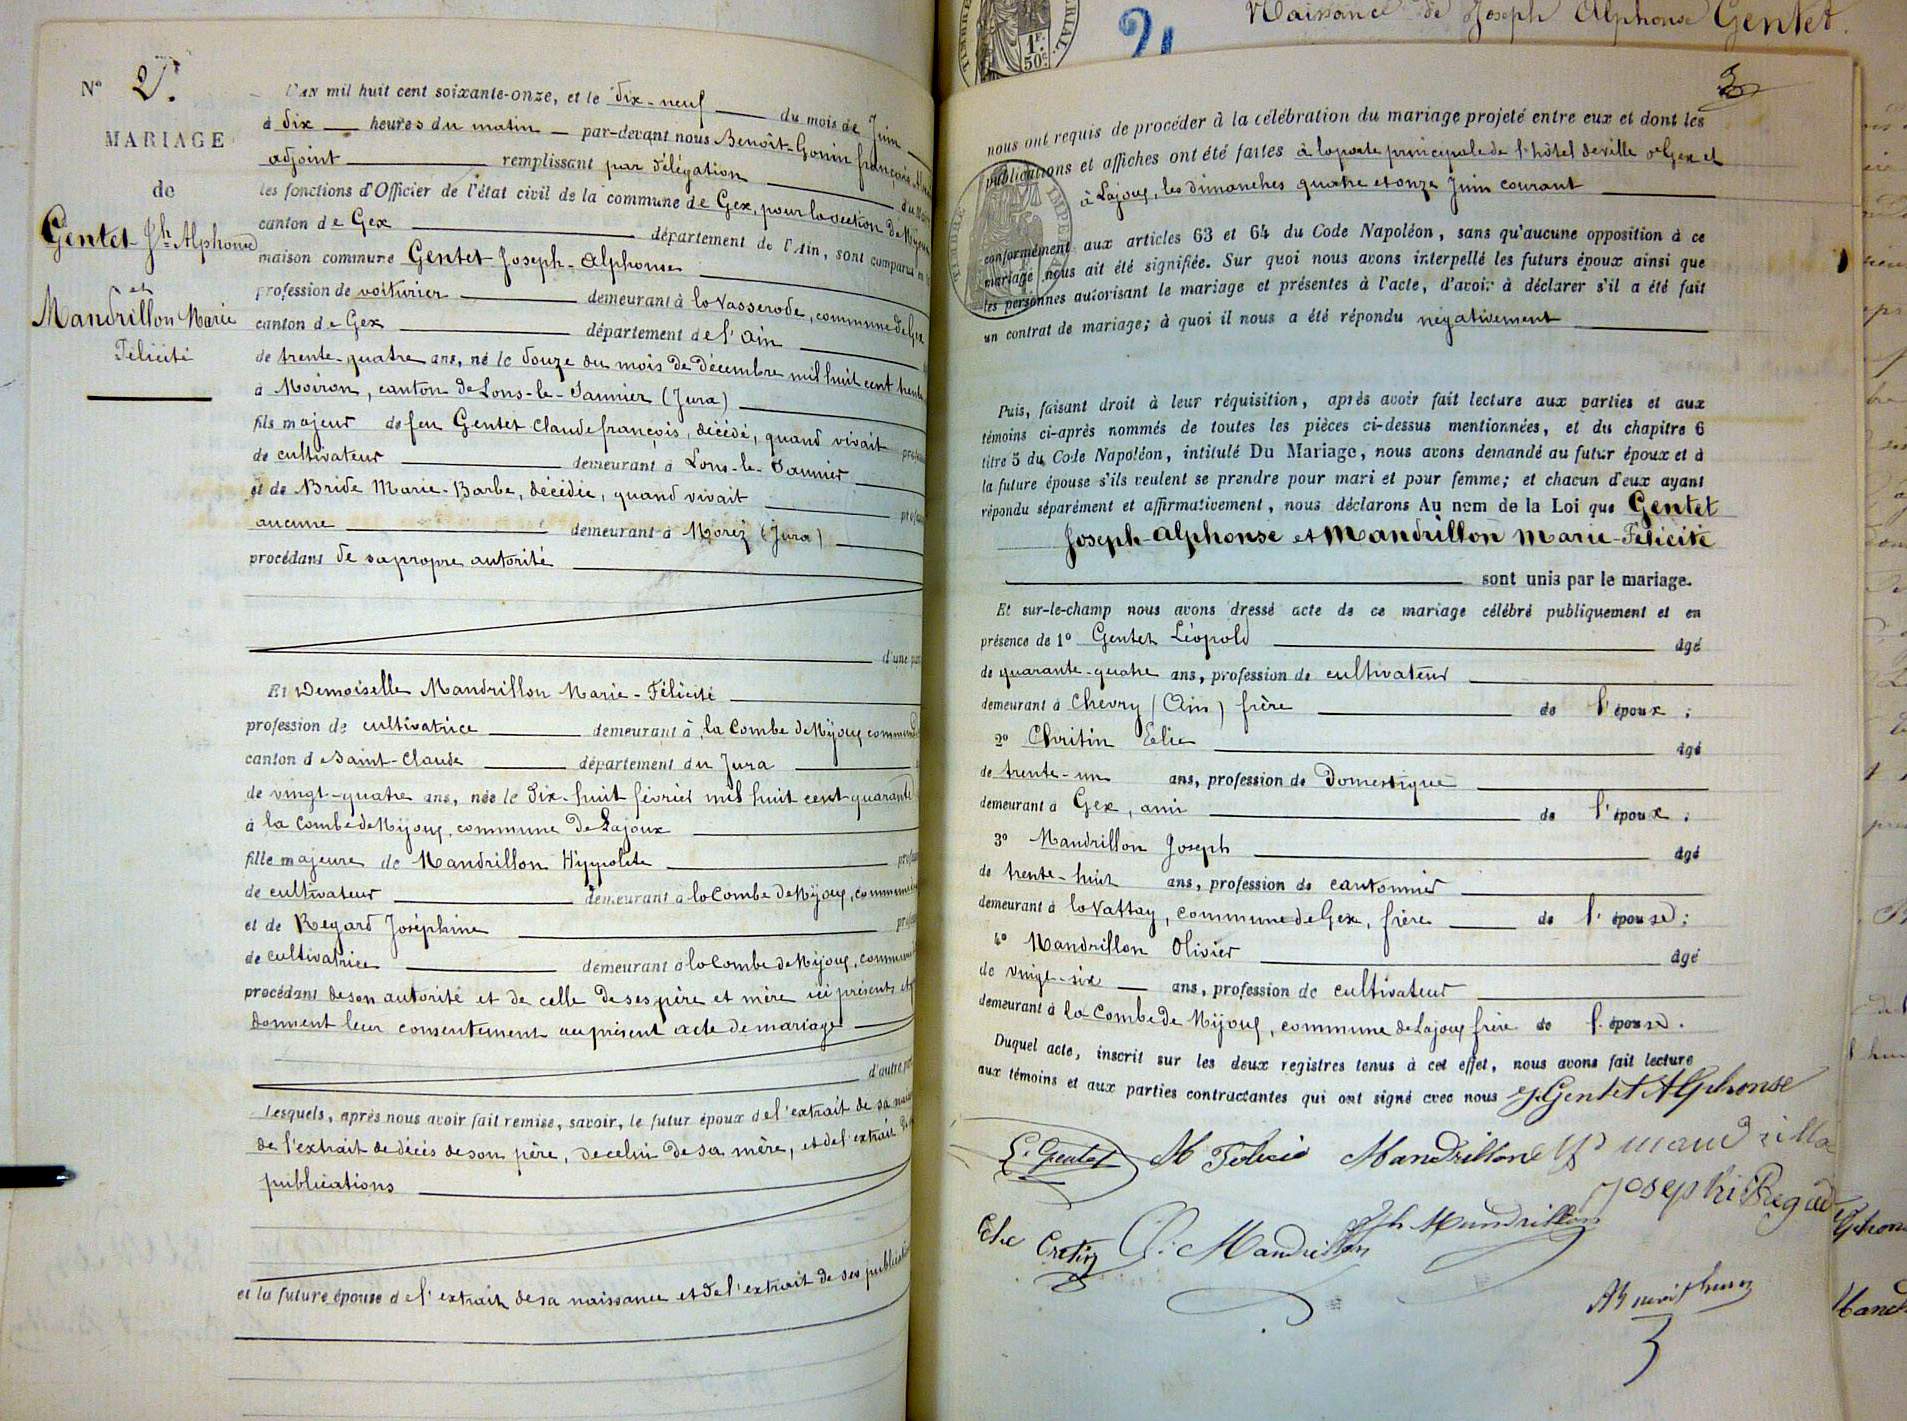 Nº 2.
MARIAGE
de
Gentet Jh Alphonse
et
Mandrillon Marie
Félicité
L'AN mil huit cent soixante-onze, et le dix-neuf du mois de Juin
à dix heures du matin par-devant nous Benoît-Gonin françois
adjoint remplissant par délégation
les fonctions d'Officier de l'état civil de la commune de Gex, pour la section de Mijoux
canton de Gex département de l'Ain, sont comparus en la
maison commune Gentet Joseph-Alphonse
profession de voiturier demeurant à la Vasserode, commune de Gex
canton de Gex département de l'Ain
de trente-quatre ans, né le douze du mois de Décembre mil huit cent trente
à Moiron, canton de Lons-le-Saunier (Jura)
fils majeur de feu Gentet Claude françois, décédé, quand vivait
de cultivateur demeurant à Lons-le-Saunier
et de Bride Marie-Barbe, décédée, quand vivait
aucune demeurant à Morez (Jura)
procédant de sa propre autorité
d'une part
Et Demoiselle Mandrillon Marie-Félicité
profession de cultivatrice demeurant à la Combe de Mijoux commune
canton de Saint-Claude département du Jura
de vingt-quatre ans, née le dix-huit février mil huit cent quarante
à la Combe de Mijoux, commune de Lajoux
fille majeure de Mandrillon Hyppolite
de cultivateur demeurant à la Combe de Mijoux, commune
et de Regard Joséphine
de cultivatrice demeurant à la Combe de Mijoux, commune
procédant de son autorité et de celle de ses père et mère ici présents et
donnent leur consentement au présent acte de mariage
d'autre part
Lesquels, après nous avoir fait remise, savoir, le futur époux de l'extrait de sa
de l'extrait de décès de son père, de celui de sa mère, et de l'extrait de
publications
et la future épouse de l'extrait de sa naissance et de l'extrait de ses publications
1F.
50c
Naissance de Joseph Alphonse Gentet.
nous ont requis de procéder à la célébration du mariage projeté entre eux et dont les
publications et affiches ont été faites à la porte principale de l'hôtel de ville de Gex et
à Lajoux, les dimanches quatre et onze Juin courant
conformément aux articles 63 et 64 du Code Napoléon, sans qu'aucune opposition à ce
mariage nous ait été signifiée. Sur quoi nous avons interpellé les futurs époux ainsi que
les personnes autorisant le mariage et présentes à l'acte, d'avoir à déclarer s'il a été fait
un contrat de mariage; à quoi il nous a été répondu négativement
Puis, faisant droit à leur réquisition, après avoir fait lecture aux parties et aux
témoins ci-après nommés de toutes les pièces ci-dessus mentionnées, et du chapitre 6
titre 5 du Code Napoléon, intitulé Du Mariage, nous avons demandé au futur époux et à
la future épouse s'ils veulent se prendre pour mari et pour femme; et chacun d'eux ayant
répondu séparément et affirmativement, nous déclarons Au nom de la Loi que Gentet
Joseph-Alphonse et Mandrillon Marie-Félicité
sont unis par le mariage.
Et sur-le-champ nous avons dressé acte de ce mariage célébré publiquement et en
présence de 1º Gentet Léopold âgé
de quarante-quatre ans, profession de cultivateur
demeurant à Chevry (Ain) frère de l'époux;
2º Chritin Elie âgé
de trente-un ans, profession de Domestique
demeurant à Gex, ami de l'époux;
3º Mandrillon Joseph âgé
de trente-huit ans, profession de cantonnier
demeurant à la Vattay, commune de Gex, frère de l'épouse;
4º Mandrillon Olivier âgé
de vingt-six ans, profession de cultivateur
demeurant à la Combe de Mijoux, commune de Lajoux frère de l'épouse.
Duquel acte, inscrit sur les deux registres tenus à cet effet, nous avons fait lecture
aux témoins et aux parties contractantes qui ont signé avec nous J Gentet Alphonse
L. Gentet M Felicie Mandrillon
Joseph Regad
Elie Cretin O. Mandrillon Jph Mandrillon